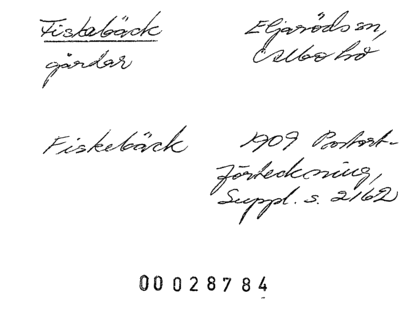 Fiskebäck Eljaröds sn,
gårdar Albo hd
Fiskebäck 1909 Postort-
förteckning,
Suppl. s. 2162
00028784